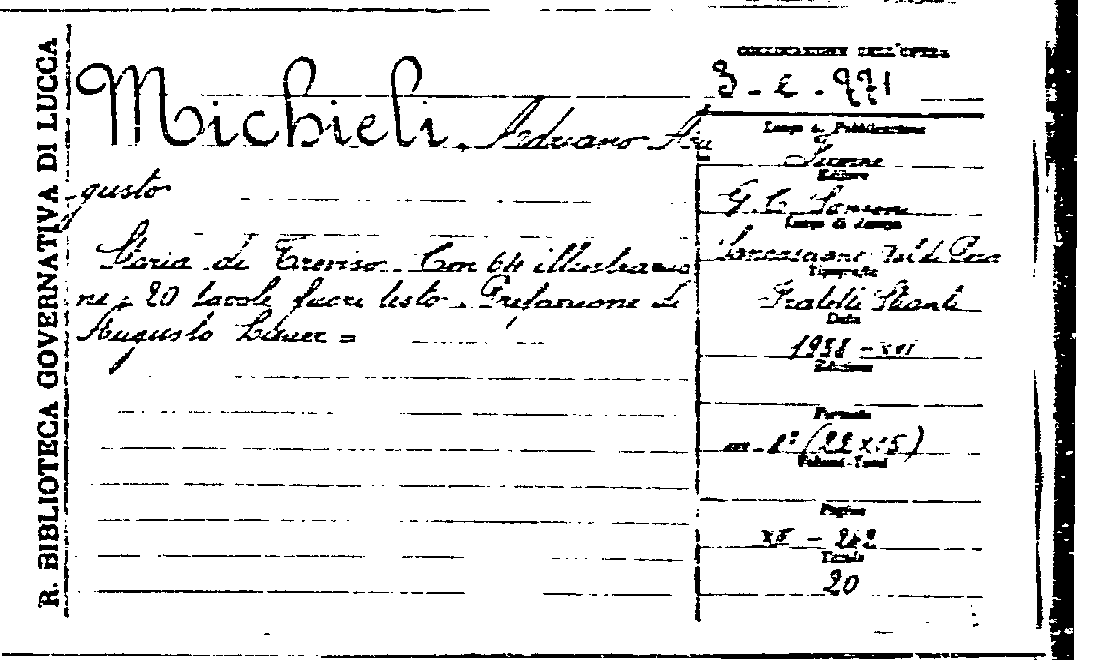 R. BIBLIOTECA GOVERNATIVA DI LUCCA
Michieli, Adriano Au
gusto
Storia di Treviso. Con 64 illustrazio
ni, 20 tavole fuori testo. Prefazione di
Augusto Lizier =
COLLOCAZIONE DELL'OPERA
Luogo di Pubblicazione
Firenze
Editore
G. C. Sansoni
Luogo di stampa
Sancasciano Val di Pesa
Tipografia
Fratelli Stianti
Data
1938 - XVI
Edizione
Formato
in-8° (22x15)
Volumi-Tomi
Pagine
XV - 242
Tavole
20